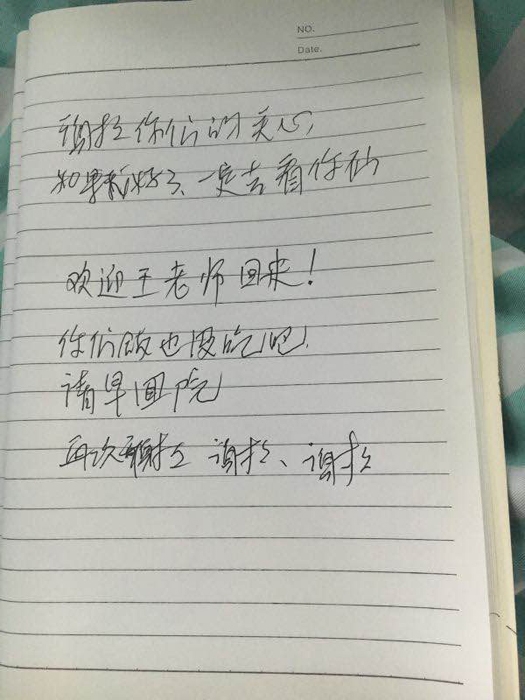 NO.
Date.
谢谢你们的关心,
如果我好了、一定去看你们
欢迎王老师回来!
你们饭也没吃吧,
请早回院
再次谢谢 谢谢、谢谢